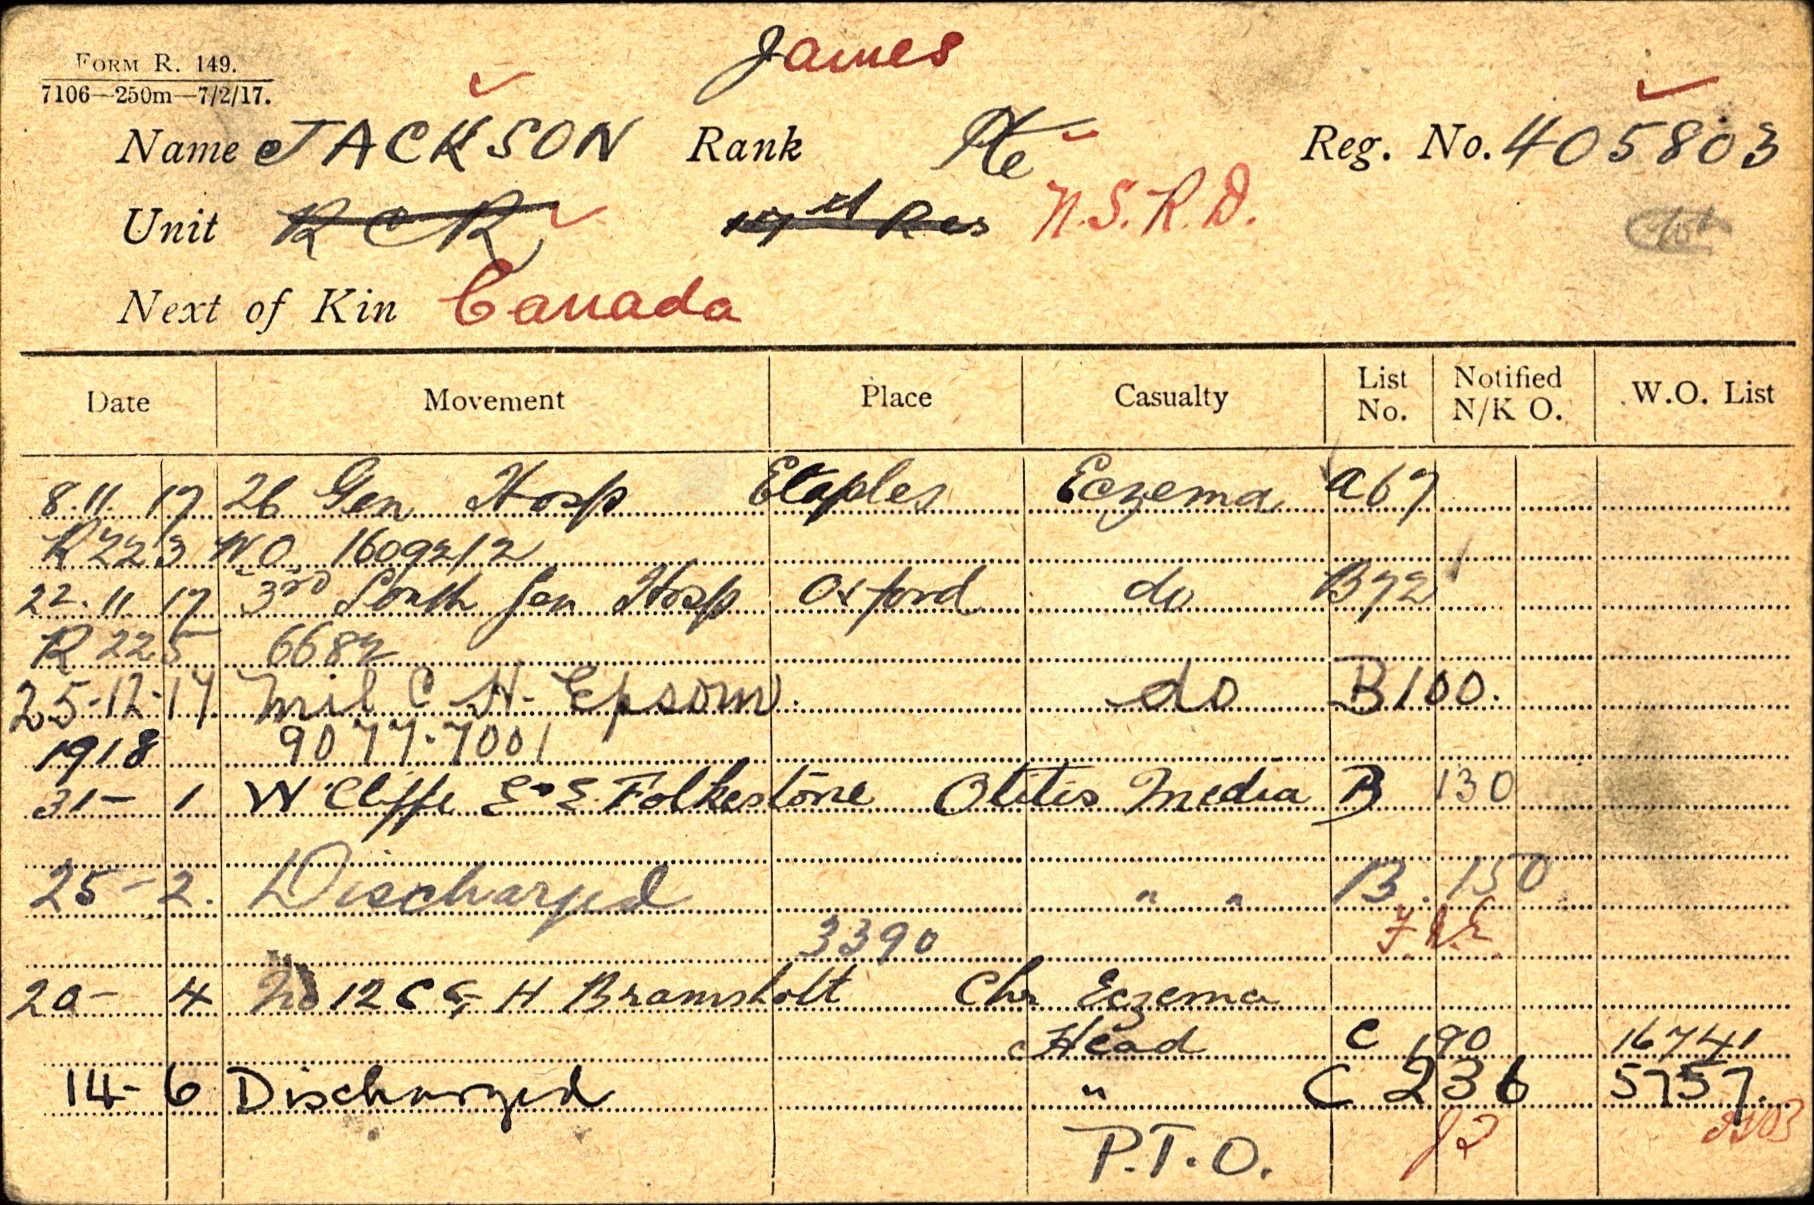 FORM R. 149.
7106—250m—7/2/17.
James
Name JACKSON Rank Pte Reg. No. 405803
Unit R C R Res N.S.R.D.
Next of Kin Canada
Date Movement Place Casualty List No. Notified N/K O. W.O. List
8.11.17 26 Gen Hosp Etaples Eczema a67
R 223 WO 160992/2
22.11.17 3rd South Gen Hosp Oxford do B72
R 225 6682
25-12-17 Mil C H. Epsom. do B100.
1918 9077.7001
31- 1 W Cliffe E & E Folkestone Otitis Media B 130
25- 2. Discharged " " B. 150
3390
20- 4 No 12 C G H Bramshott Chr Eczema
Head C 190 16741
14- 6 Discharged " C 236 5757.
P.T.O.